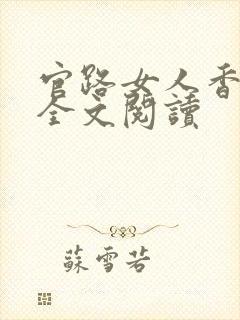 官路女人香
全文閱讀
蘇雪若